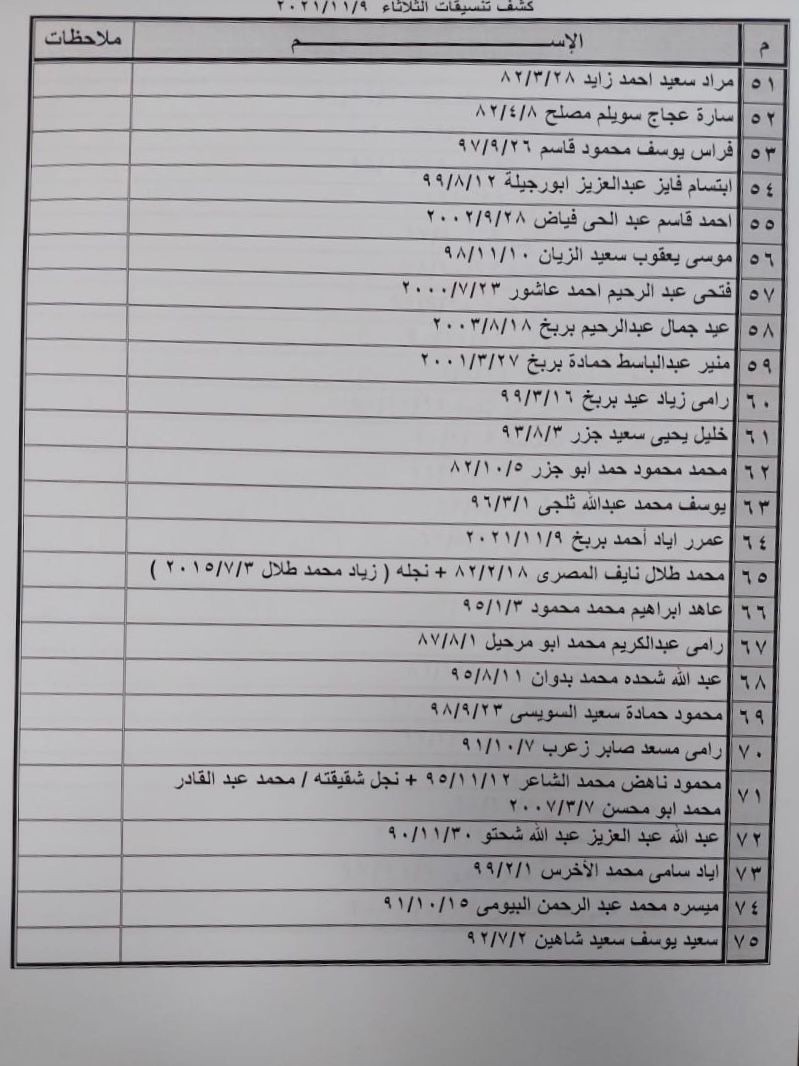 كشف تنسيقات الثلاثاء ٢٠٢١/١١/٩
م الإســـــــــــم ملاحظات
٥١ مراد سعيد احمد زايد ٨٢/٣/٢٨
٥٢ سارة عجاج سويلم مصلح ٨٢/٤/٨
٥٣ فراس يوسف محمود قاسم ٩٧/٩/٢٦
٥٤ ابتسام فايز عبدالعزيز ابورجيلة ٩٩/٨/١٢
٥٥ احمد قاسم عبد الحى فياض ٢٠٠٢/٩/٢٨
٥٦ موسى يعقوب سعيد الزيان ٩٨/١١/١٠
٥٧ فتحى عبد الرحيم احمد عاشور ٢٠٠٠/٧/٢٣
٥٨ عيد جمال عبدالرحيم بربخ ٢٠٠٣/٨/١٨
٥٩ منير عبدالباسط حمادة بربخ ٢٠٠١/٣/٢٧
٦٠ رامى زياد عيد بربخ ٩٩/٣/١٦
٦١ خليل يحيى سعيد جزر ٩٣/٨/٣
٦٢ محمد محمود حمد ابو جزر ٨٢/١٠/٥
٦٣ يوسف محمد عبدالله ثلجى ٩٦/٣/١
٦٤ عمرر اياد أحمد بربخ ٢٠٢١/١١/٩
٦٥ محمد طلال نايف المصرى ٨٢/٢/١٨ + نجله ( زياد محمد طلال ٢٠١٥/٧/٣ )
٦٦ عاهد ابراهيم محمد محمود ٩٥/١/٣
٦٧ رامى عبدالكريم محمد ابو مرحيل ٨٧/٨/١
٦٨ عبد الله شحده محمد بدوان ٩٥/٨/١١
٦٩ محمود حمادة سعيد السويسى ٩٨/٩/٢٣
٧٠ رامى مسعد صابر زعرب ٩١/١٠/٧
٧١ محمود ناهض محمد الشاعر ٩٥/١١/١٢ + نجل شقيقته / محمد عبد القادر
محمد ابو محسن ٢٠٠٧/٣/٧
٧٢ عبد الله عبد العزيز عبد الله شحتو ٩٠/١١/٣٠
٧٣ اياد سامى محمد الأخرس ٩٩/٢/١
٧٤ ميسره محمد عبد الرحمن البيومى ٩١/١٠/١٥
٧٥ سعيد يوسف سعيد شاهين ٩٢/٧/٢